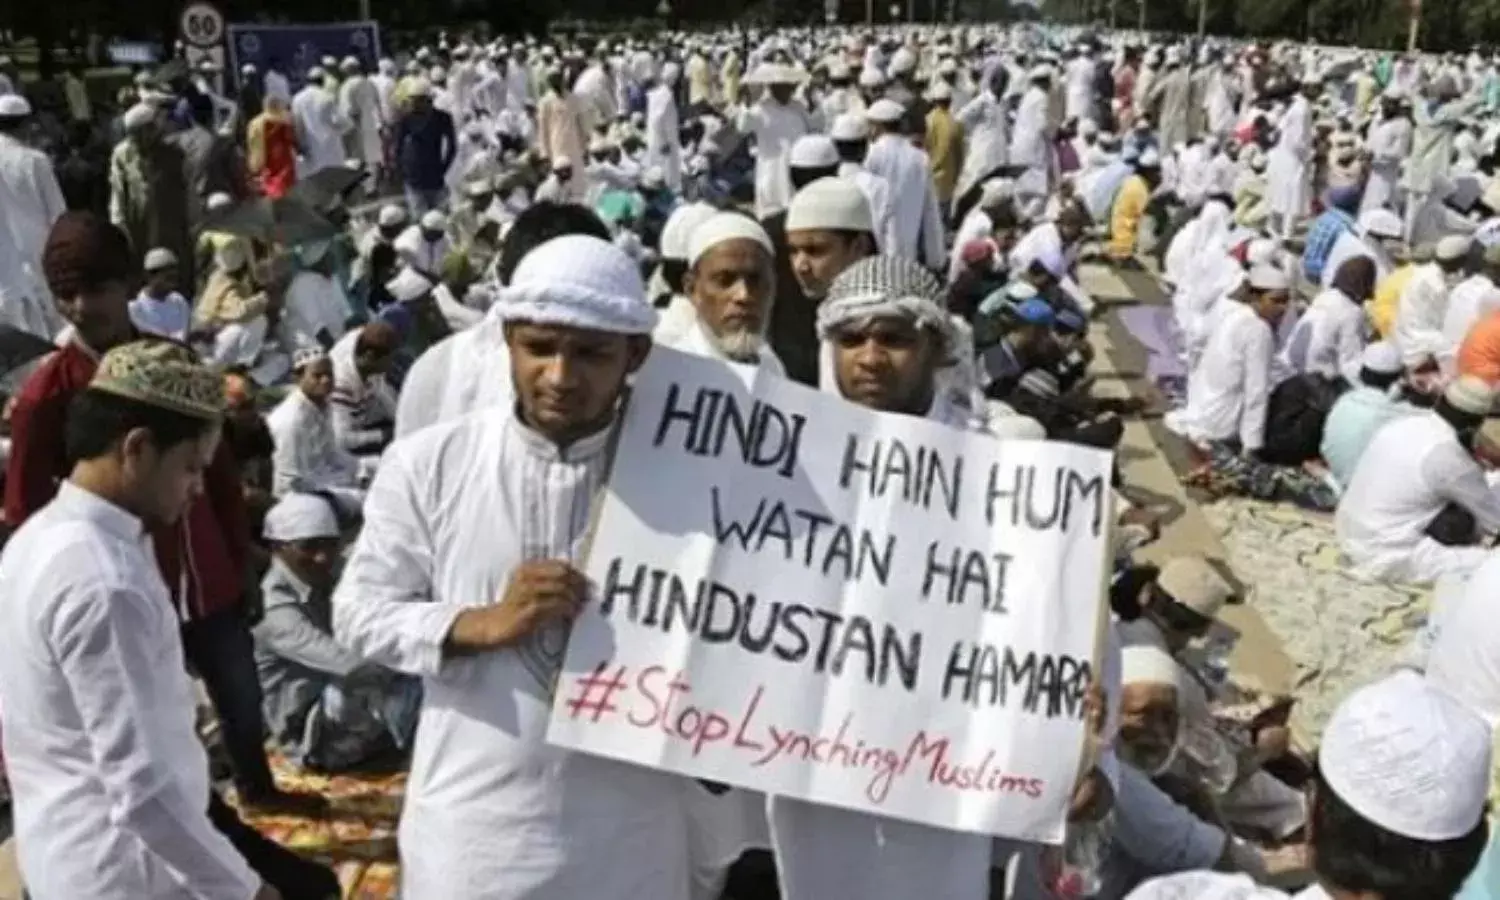 60
HINDI HAIN HUM
WATAN HAI
HINDUSTAN HAMARA
#StopLynchingMuslims